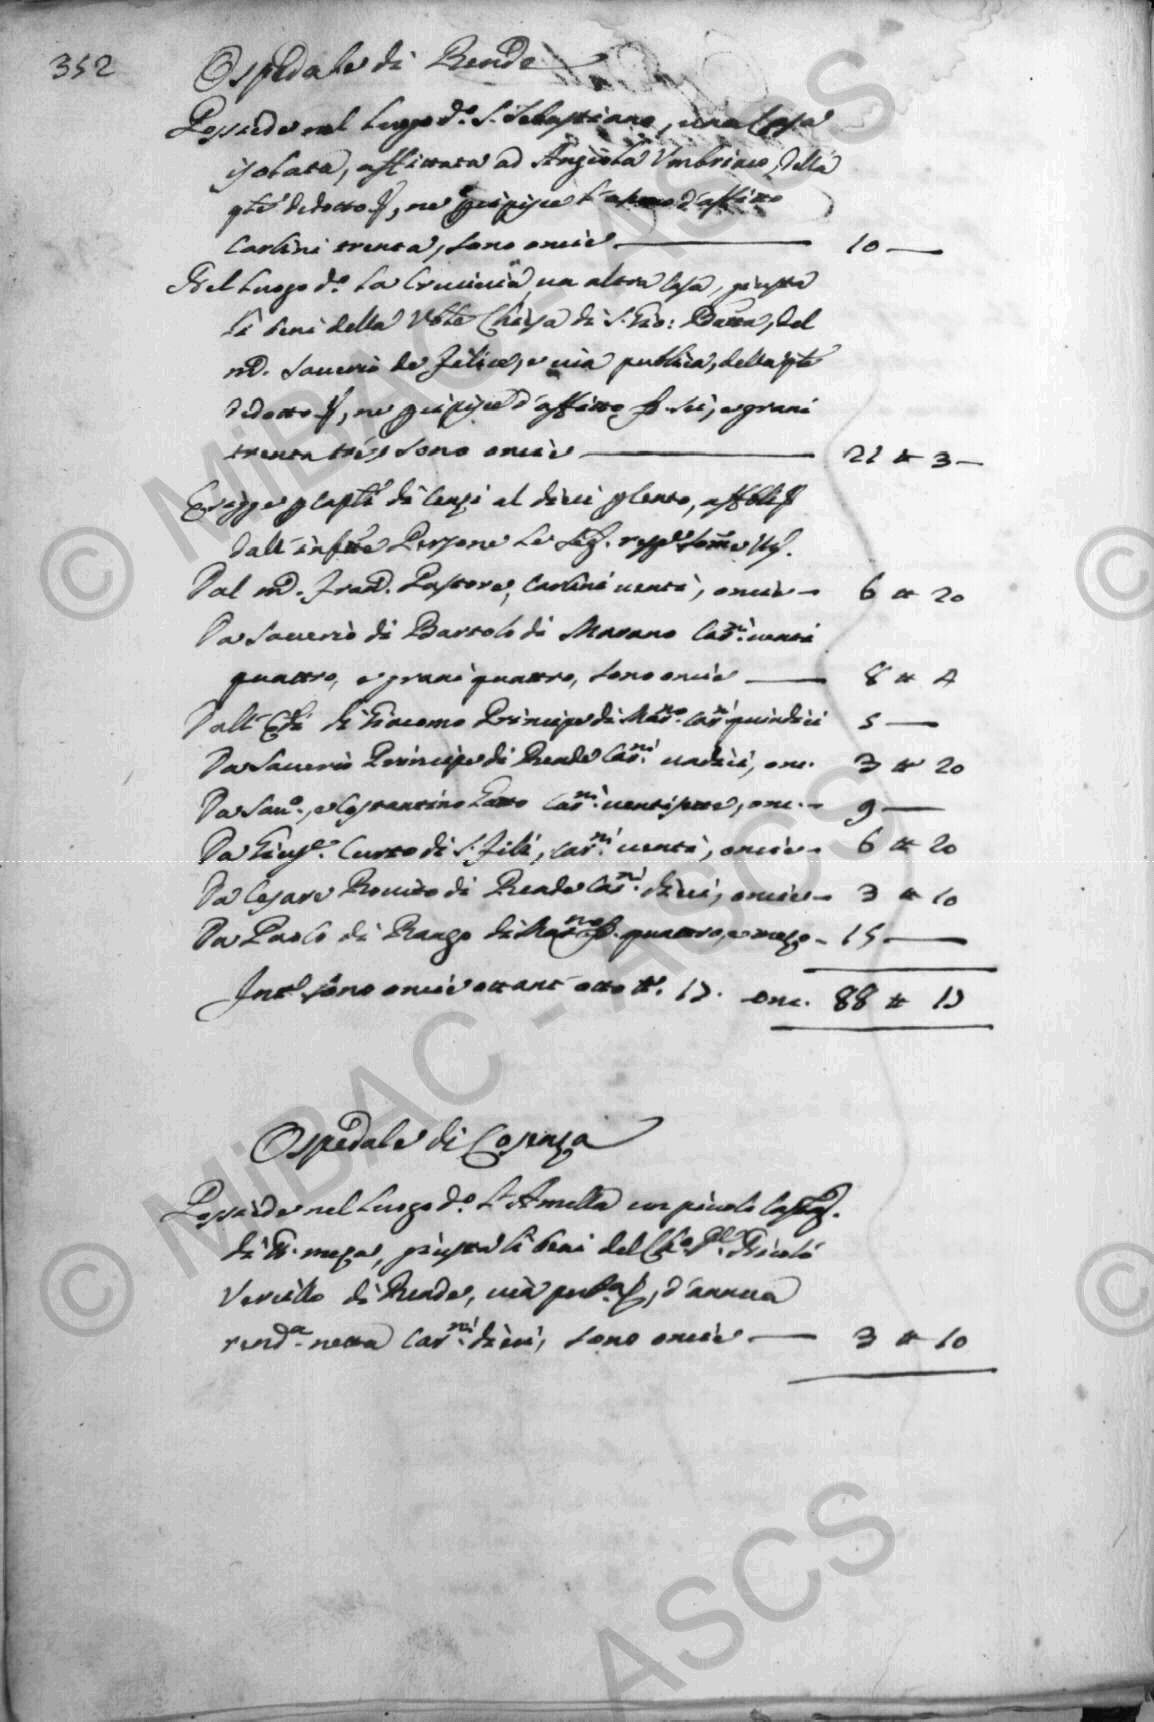 352
Ospedale di Rende
Possiede nel luogo d.º S. Sebastiano, una Casa
isolata, affittata ad Angiola Umbriaco, della
qle dedotto, ne percipisce l'annuo d'affitto
Carlini trenta, sono oncie — 10 —
Nel luogo d.º la un altra Casa, giusta
li beni della Vble Chiesa di S. Gio: Batta, del
md. Saverio de Felice, e via publica, della qle
dedotto, ne percipisce d'affitto sei, e grani
trenta tré, sono oncie — 21 tt 3 —
Esigge p Capli di Censi al dieci p Cento,
dall'infrte Persone le seg. respe somme
Dal md. Franc. Pastore, Carlini venti, oncie — 6 tt 20
Da Saverio di Bartolo di Marano Car.ni venti
quattro, e grani quattro, sono oncie — 8 tt 4
Dall'Edi di Giacomo Principe di Mar.no Car.ni quindici 5 —
Da Saverio Principe di Rende Car.ni undici, onc. 3 tt 20
Da Sav.º, e Costantino Car.ni ventisette, onc. — 9 —
Da Gius.e Curto di S. Fili, Car.ni venti, oncie — 6 tt 20
Da Cesare Rovito di Rende Car.ni dieci, oncie — 3 tt 10
Da Paolo di Rango di Mar.no quattro, e mezo — 15 —
Int.º sono oncie ottant'otto tt. 17. Onc. 88 tt 17
Ospedale di Cosenza
Possiede nel luogo d.º un piccolo
di tt. meza, giusta li beni del Nicolò
Vercillo di Rende, via pub.a, d'annua
rend.a netta Car.ni dieci, sono oncie — 3 tt 10
© MiBAC - ASCS
© MiBAC - ASCS
©
©
ASCS